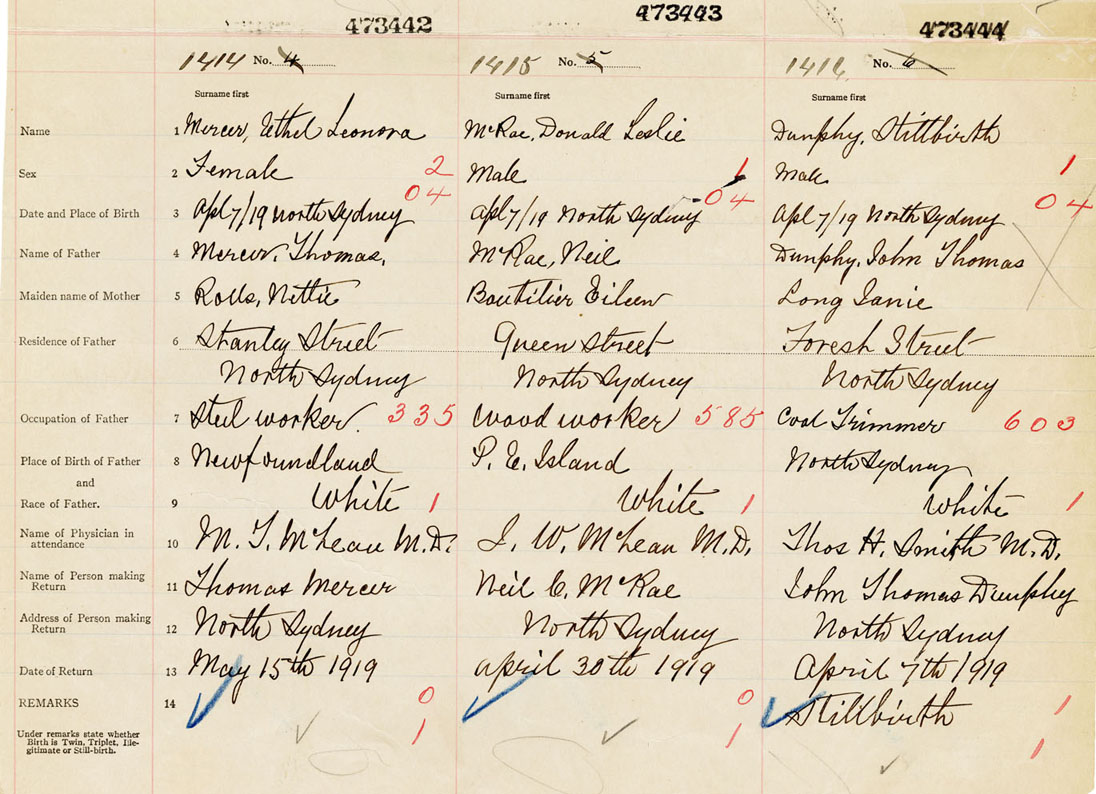 473442 473443 473444
1414 No. 4 1415 No. 5 1416 No. 6
Surname first Surname first Surname first
Name 1 Mercer, Ethel Leonora McRae, Donald Leslie Dunphy, Stillbirth
Sex 2 Female 2 Male 1 Male 1
04 04 04
Date and Place of Birth 3 Apl 7/19 North Sydney Apl 7/19 North Sydney Apl 7/19 North Sydney
Name of Father 4 Mercer, Thomas, McRae, Neil Dunphy, John Thomas
Maiden name of Mother 5 Rolls, Nettie Boutilier Eileen Long Janie
Residence of Father 6 Stanley Street Queen Street Foresh Street
North Sydney North Sydney North Sydney
Occupation of Father 7 Steel worker. 335 Wood worker 585 Coal Trimmer 603
Place of Birth of Father 8 Newfoundland P. E. Island North Sydney
and
Race of Father. 9 White 1 White 1 White 1
Name of Physician in
attendance 10 M. T. McLean M.D. J. W. McLean M.D. Thos H. Smith M.D.
Name of Person making
Return 11 Thomas Mercer Neil C. McRae John Thomas Dunphy
Address of Person making
Return 12 North Sydney North Sydney North Sydney
Date of Return 13 May 15th 1919 April 30th 1919 April 7th 1919
REMARKS 14 0 0 Stillbirth 1
Under remarks state whether
Birth is Twin, Triplet, Ille-
gitimate or Still-birth. 1 1 1